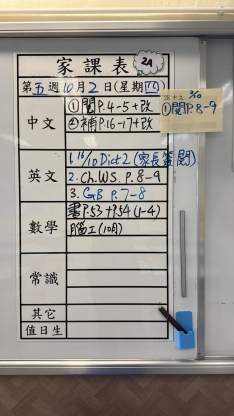 家課表 2A
第五週10月2日(星期四)
中文
①閱P.4-5+改
②補P.16-17+改
3/10
①閱P.8-9
英文
1. 16/10 Dict 2 (家長簽閱)
2. Ch.WS. P.8-9
3. GB P.7-8
數學
書P.53+P.54(1-4)
腦工(10月)
常識
其它
值日生